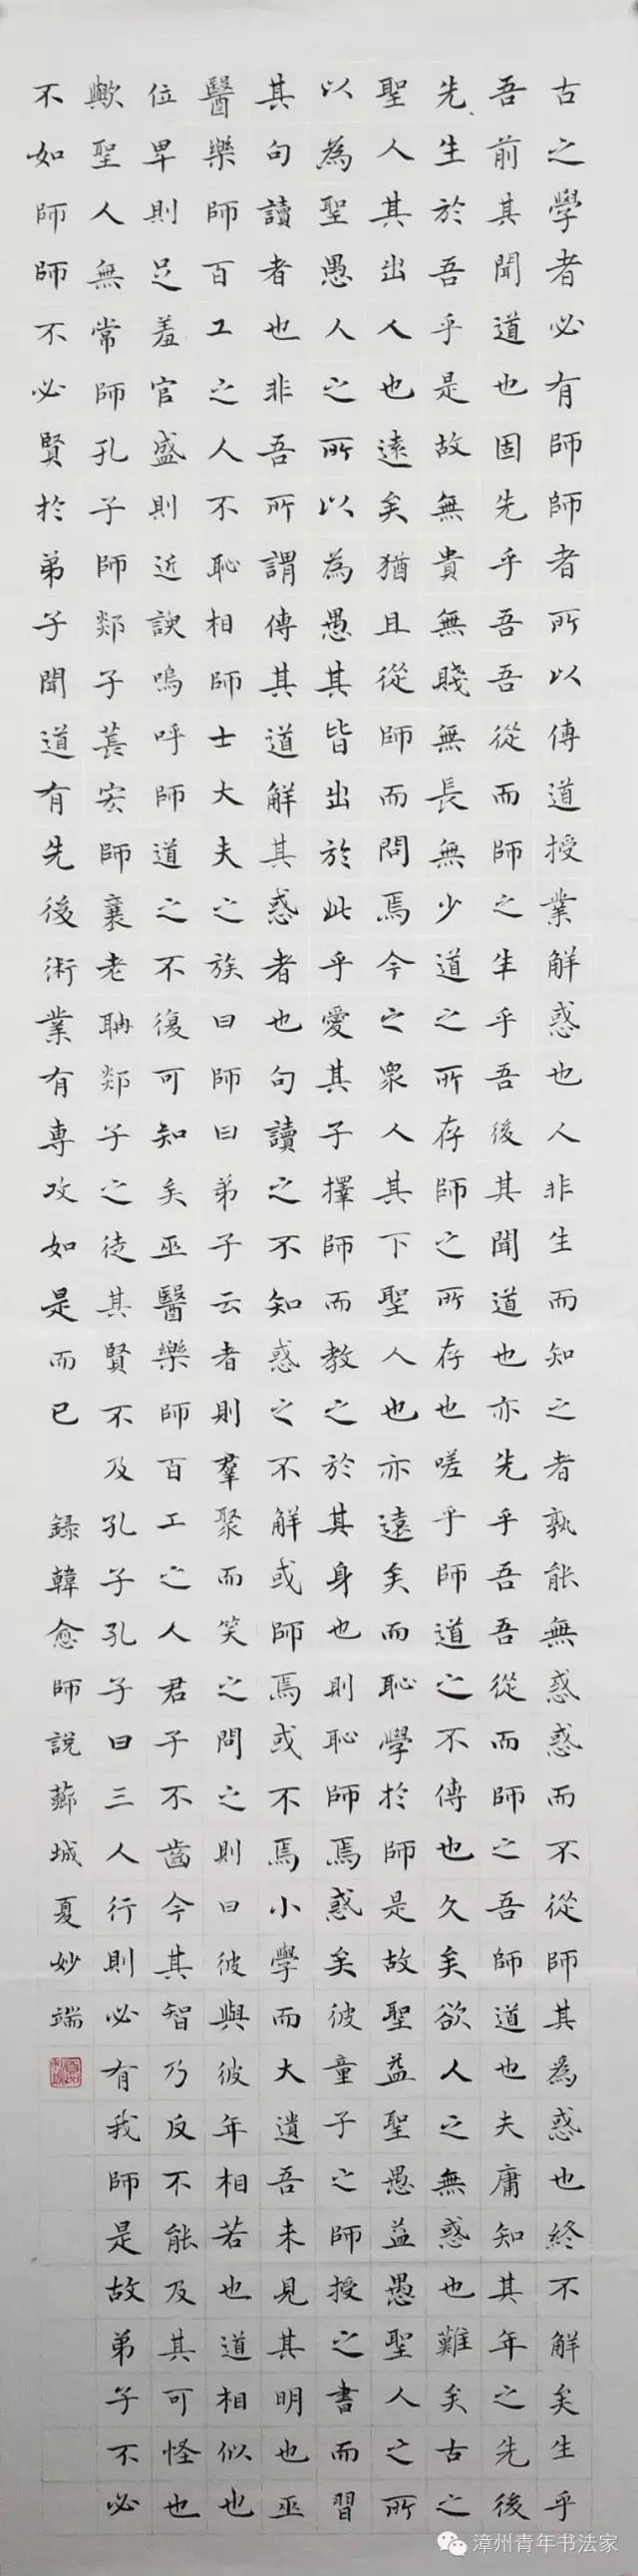 古之學者必有師師者所以傳道授業解惑也人非生而知之者孰能無惑惑而不從師其為惑也終不解矣生乎
吾前其聞道也固先乎吾吾從而師之生乎吾後其聞道也亦先乎吾吾從而師之吾師道也夫庸知其年之先後
先生於吾乎是故無貴無賤無長無少道之所存師之所存也嗟乎師道之不傳也久矣欲人之無惑也難矣古之
聖人其出人也遠矣猶且從師而問焉今之眾人其下聖人也亦遠矣而恥學於師是故聖益聖愚益愚聖人之所
以為聖愚人之所以為愚其皆出於此乎愛其子擇師而教之於其身也則恥師焉惑矣彼童子之師授之書而習
其句讀者也非吾所謂傳其道解其惑者也句讀之不知惑之不解或師焉或不焉小學而大遺吾未見其明也巫
醫樂師百工之人不恥相師士大夫之族曰師曰弟子云者則羣聚而笑之問之則曰彼與彼年相若也道相似也
位卑則足羞官盛則近諛嗚呼師道之不復可知矣巫醫樂師百工之人君子不齒今其智乃反不能及其可怪也
歟聖人無常師孔子師郯子萇宏師襄老聃郯子之徒其賢不及孔子孔子曰三人行則必有我師是故弟子不必
不如師師不必賢於弟子聞道有先後術業有專攻如是而已 錄韓愈師說薌城夏妙端
漳州青年书法家